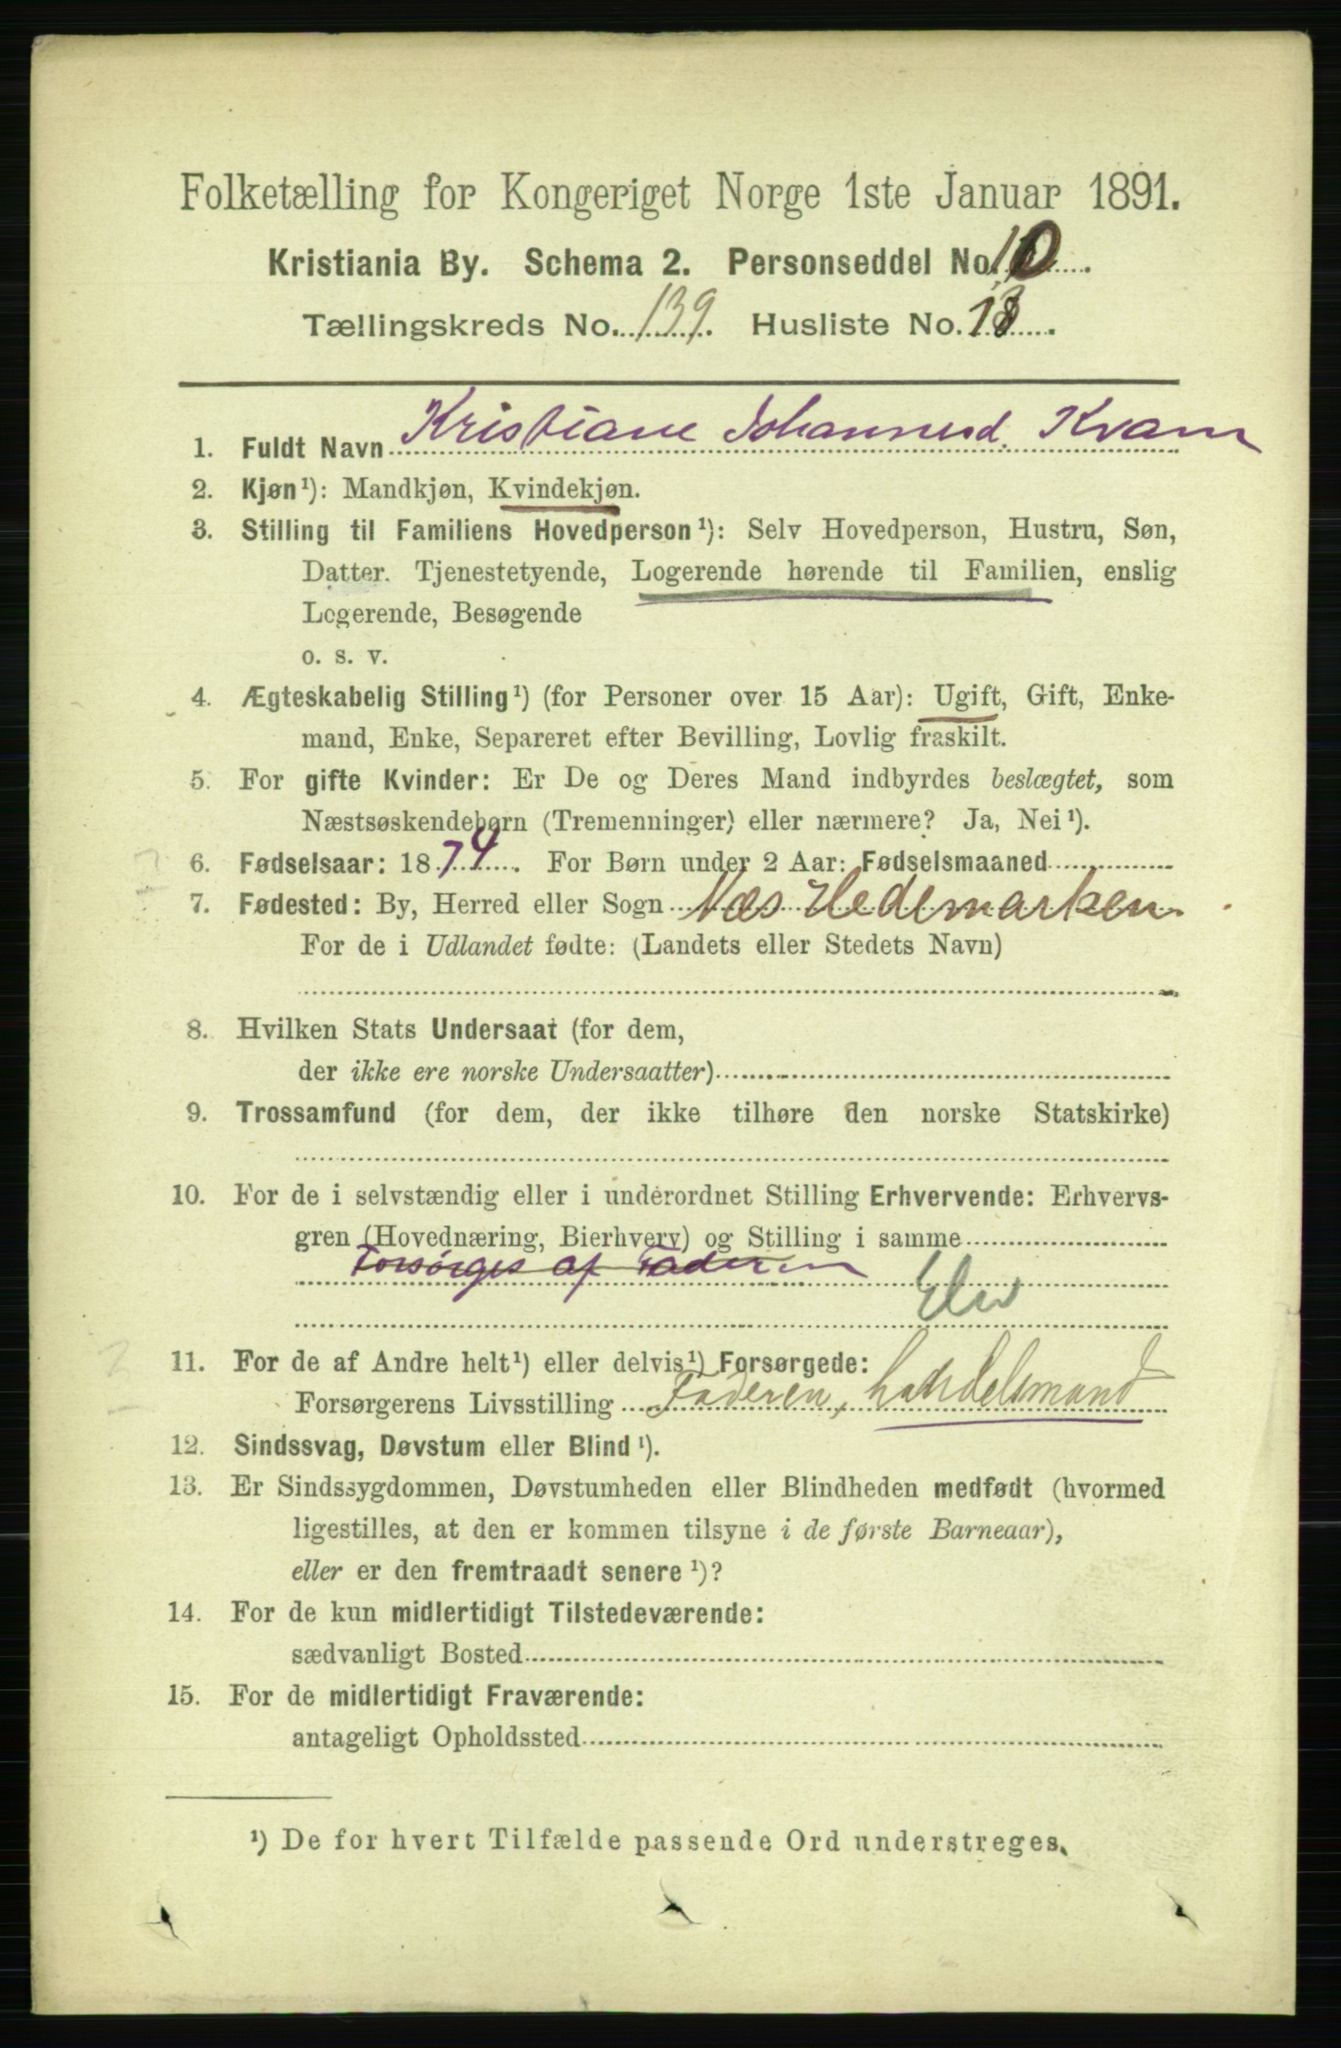 Folketælling for Kongeriget Norge 1ste Januar 1891.
Kristiania By. Schema 2. Personseddel No. 10.
Tællingskreds No. 139. Husliste No. 13.
1. Fuldt Navn Kristiane Johannesd. Kvam
2. Kjøn¹): Mandkjøn, Kvindekjøn.
3. Stilling til Familiens Hovedperson¹): Selv Hovedperson, Hustru, Søn,
Datter. Tjenestetyende, Logerende hørende til Familien, enslig
Logerende, Besøgende
o. s. v.
4. Ægteskabelig Stilling¹) (for Personer over 15 Aar): Ugift, Gift, Enke-
mand, Enke, Separeret efter Bevilling, Lovlig fraskilt.
5. For gifte Kvinder: Er De og Deres Mand indbyrdes beslægtet, som
Næstsøskendebørn (Tremenninger) eller nærmere? Ja, Nei¹).
6. Fødselsaar: 1874. For Børn under 2 Aar: Fødselsmaaned
7. Fødested: By, Herred eller Sogn Næs Hedemarken
For de i Udlandet fødte: (Landets eller Stedets Navn)
8. Hvilken Stats Undersaat (for dem,
der ikke ere norske Undersaatter)
9. Trossamfund (for dem, der ikke tilhøre den norske Statskirke)
10. For de i selvstændig eller i underordnet Stilling Erhvervende: Erhvervs-
gren (Hovednæring, Bierhverv) og Stilling i samme
Forsørges af Faderen
Elev
11. For de af Andre helt¹) eller delvis¹) Forsørgede:
Forsørgerens Livsstilling Faderen, handelsmand
12. Sindssvag, Døvstum eller Blind¹).
13. Er Sindssygdommen, Døvstumheden eller Blindheden medfødt (hvormed
ligestilles, at den er kommen tilsyne i de første Barneaar),
eller er den fremtraadt senere¹)?
14. For de kun midlertidigt Tilstedeværende:
sædvanligt Bosted
15. For de midlertidigt Fraværende:
antageligt Opholdssted
¹) De for hvert Tilfælde passende Ord understreges.